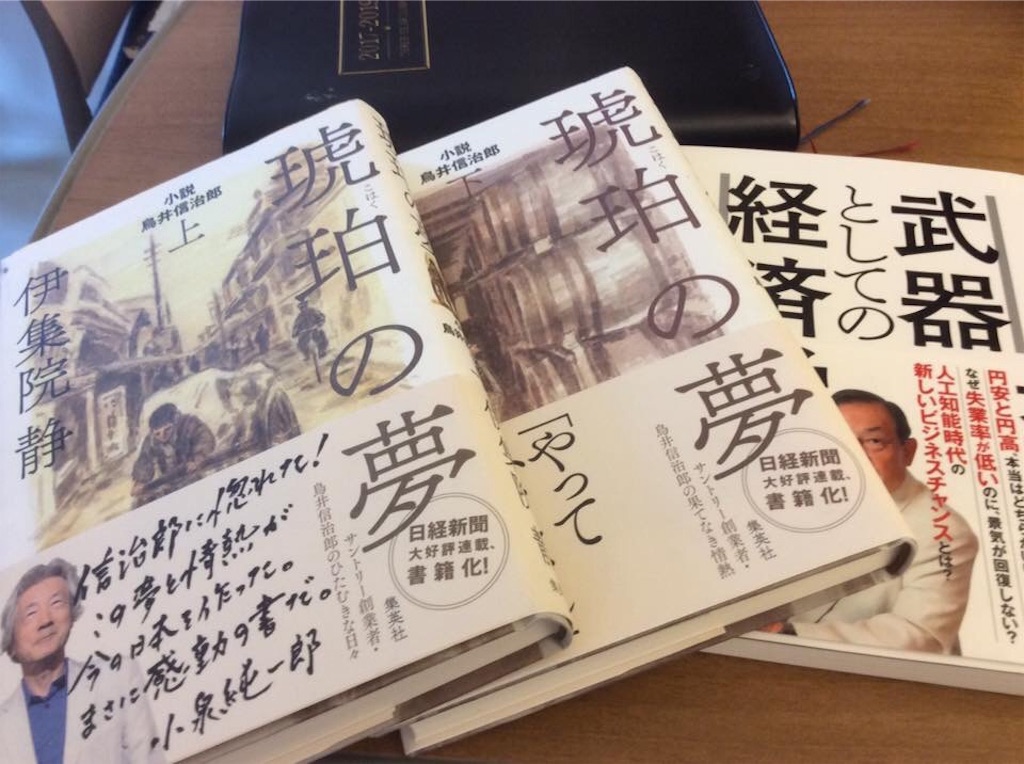 2017-2019
小説
鳥井信治郎
上
琥珀の夢
こはく
伊集院静
信治郎に惚れた!
この夢と情熱が
今の日本を作った。
まさに感動の書だ。
小泉純一郎
日経新聞
大好評連載、
書籍化!
サントリー創業者・
鳥井信治郎のひたむきな日々
集英社
小説
鳥井信治郎
下
琥珀の夢
こはく
「やって
日経新聞
大好評連載、
書籍化!
サントリー創業者・
鳥井信治郎の果てなき情熱
集英社
武器
としての
経済
円安と円高、本当はどち
なぜ失業率が低いのに、景気が回復しない?
人工知能時代の
新しいビジネスチャンスとは?